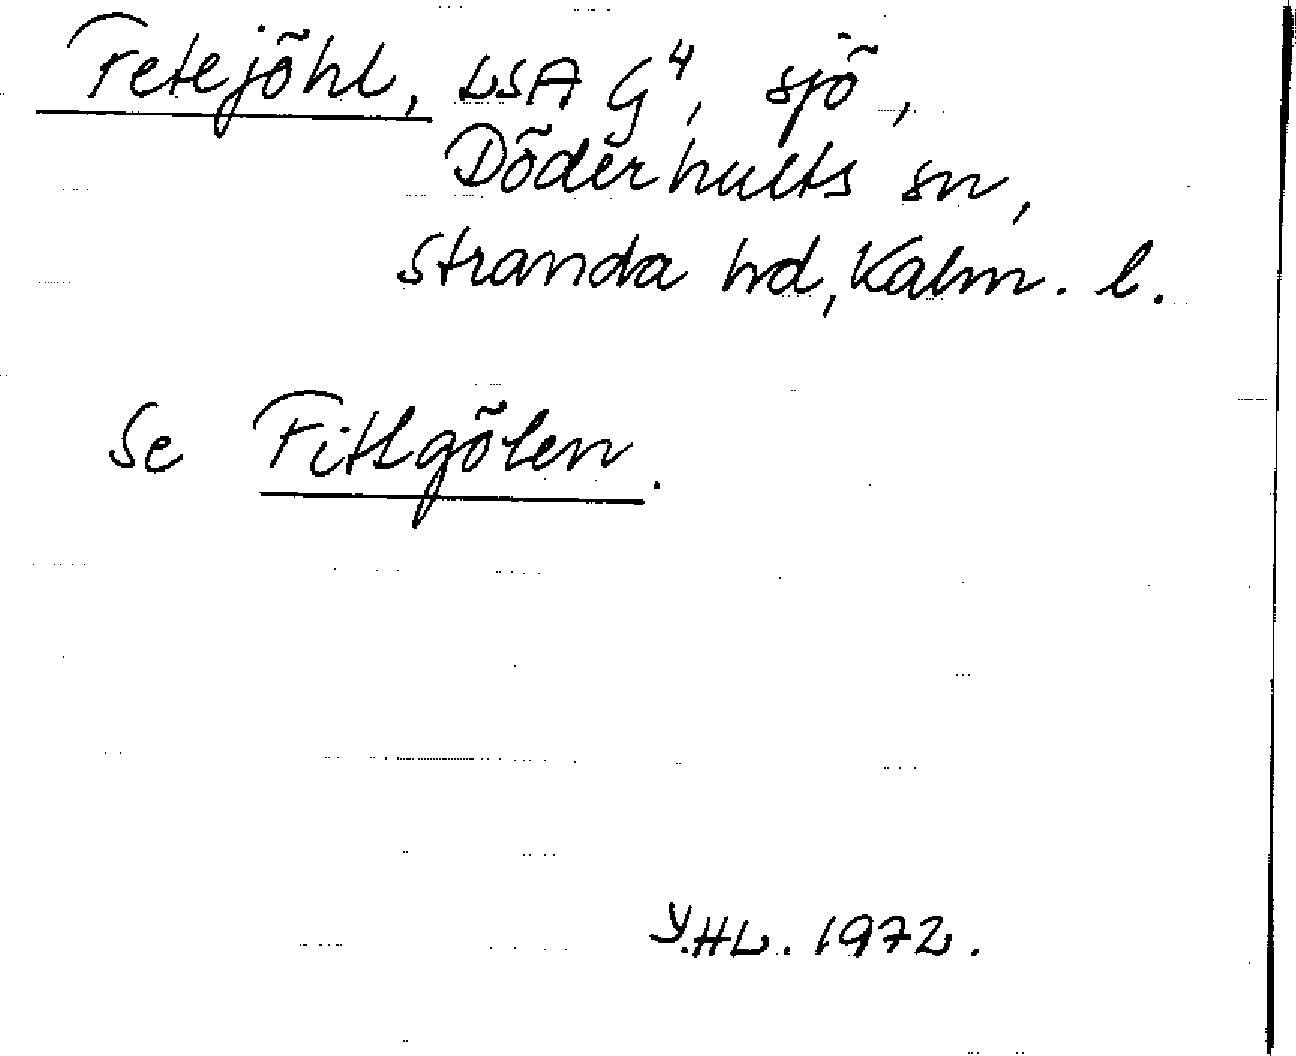 Fetejöhl, LSA G⁴, sjö,
Döderhults sn,
Stranda hd, Kalm. l.
Se Fittgölen.
Y.HL. 1972.